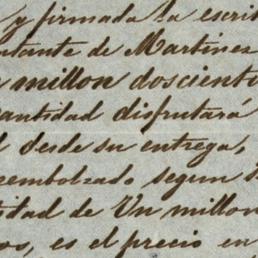 y firmada la escrit
ntante de Martinez
millon doscient
cantidad disfrutará
l desde su entrega,
eembolzado segun
tidad de Un millon
os, es el precio en